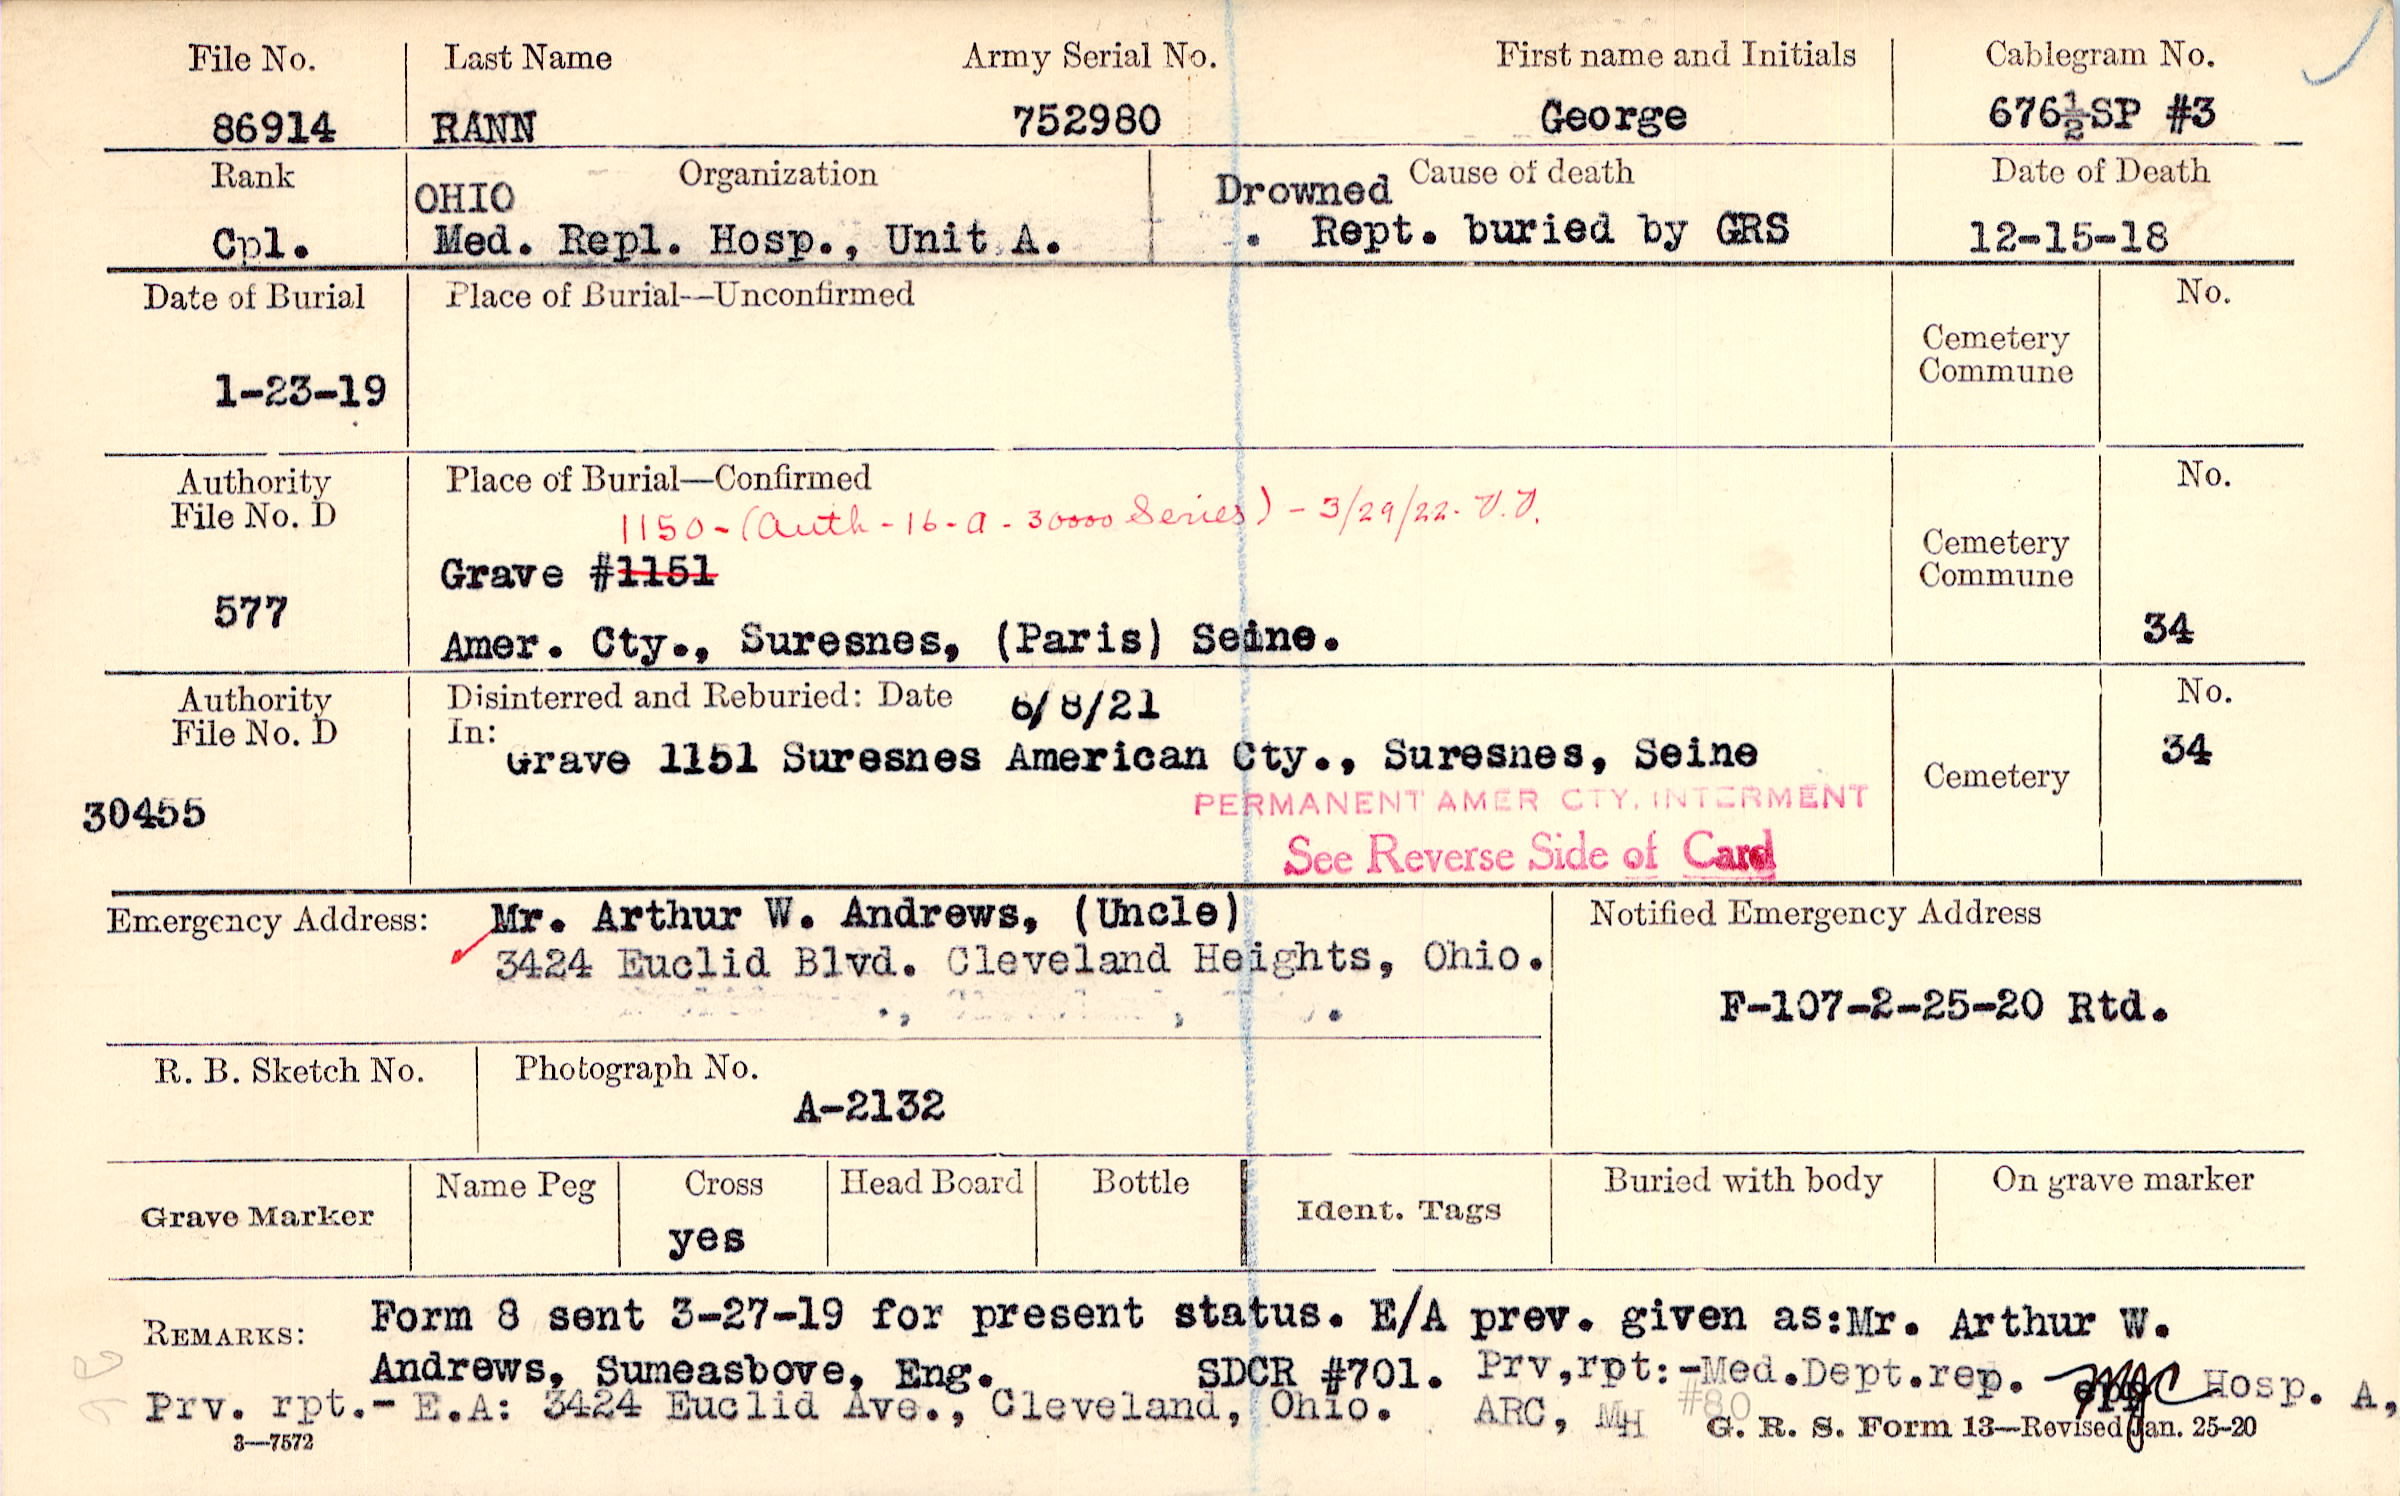 File No. Last Name Army Serial No. First name and Initials Cablegram No.
86914 RANN 752980 George 676½SP #3
Rank Organization Cause of death Date of Death
OHIO Drowned
Cpl. Med. Repl. Hosp., Unit A. . Rept. buried by GRS 12-15-18
Date of Burial Place of Burial—Unconfirmed No.
Cemetery
Commune
1-23-19
Authority Place of Burial—Confirmed No.
File No. D
1150-(Auth-16-a-30000 Series)-3/29/22-
Grave #1151
Cemetery
Commune
577
Amer. Cty., Suresnes, (Paris) Seine. 34
Authority Disinterred and Reburied: Date 6/8/21 No.
File No. D In:
Grave 1151 Suresnes American Cty., Suresnes, Seine 34
Cemetery
PERMANENT AMER CTY. INTERMENT
30455
See Reverse Side of Card
Emergency Address: Mr. Arthur W. Andrews, (Uncle) Notified Emergency Address
3424 Euclid Blvd. Cleveland Heights, Ohio.
F-107-2-25-20 Rtd.
R. B. Sketch No. Photograph No.
A-2132
Grave Marker Name Peg Cross Head Board Bottle Ident. Tags Buried with body On grave marker
yes
REMARKS: Form 8 sent 3-27-19 for present status. E/A prev. given as:Mr. Arthur W.
Andrews, Sumeasbove, Eng. SDCR #701. Prv,rpt:-Med.Dept.rep. Hosp. A,
Prv. rpt.- E.A: 3424 Euclid Ave., Cleveland, Ohio. ARC, MH #80
3—7572 G. R. S. Form 13—Revised Jan. 25-20